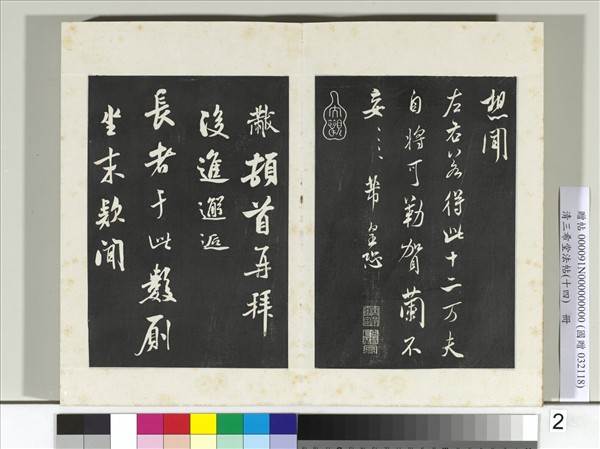 想聞
左右若得此十二万夫
自將可勒賀蘭不
妄〻〻芾皇恐
黻頓首再拜
後進邂逅
長者于此數厠
坐末款聞
贈帖 000091N000000000 (國贈 032118)
清三希堂法帖(十四) 冊
2